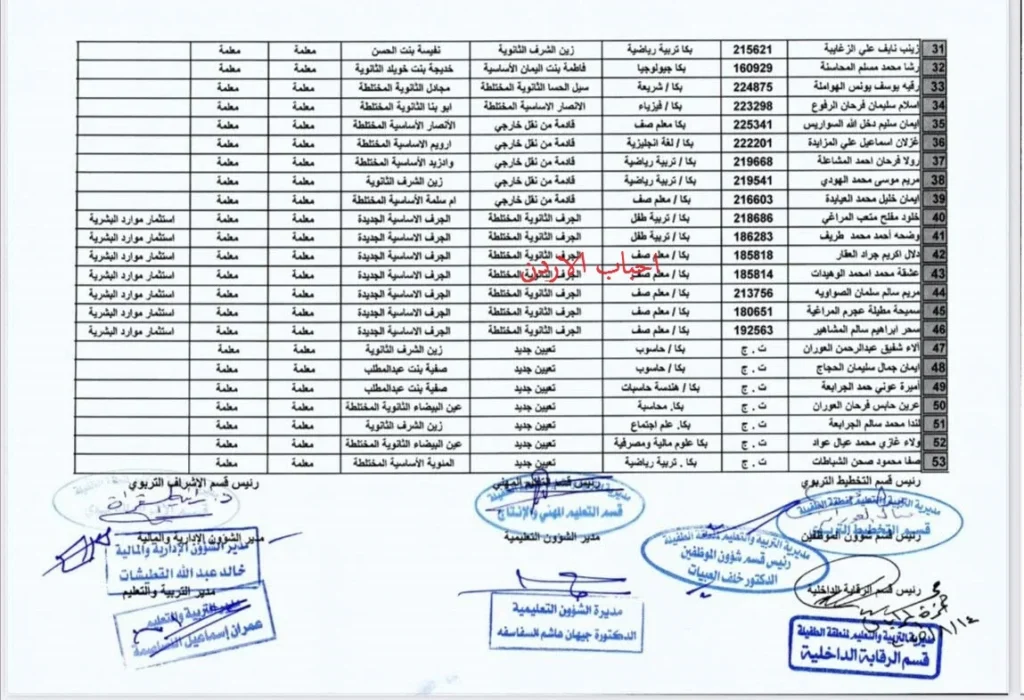 31 زينب نايف علي الزغايبة 215621 بكا تربية رياضية زين الشرف الثانوية نفيسة بنت الحسن معلمة معلمة
32 رشا محمد مسلم المحاسنة 160929 بكا جيولوجيا فاطمة بنت اليمان الأساسية خديجة بنت خويلد الثانوية معلمة معلمة
33 رقيه يوسف يونس الهواملة 224875 بكا / شريعة سيل الحسا الثانوية المختلطة مجادل الثانوية المختلطة معلمة معلمة
34 اسلام سليمان فرحان الرفوع 223298 بكا / فيزياء الانصار الاساسية المختلطة ابو بنا الثانوية المختلطة معلمة معلمة
35 ايمان سليم دخل الله السواريس 225341 بكا معلم صف قادمة من نقل خارجي الأنصار الأساسية المختلطة معلمة معلمة
36 غزلان اسماعيل علي المزايدة 222201 بكا / لغة انجليزية قادمة من نقل خارجي ارويم الاساسية المختلطة معلمة معلمة
37 رولا فرحان احمد المشاعلة 219668 بكا / تربية رياضية قادمة من نقل خارجي وادزيد الأساسية المختلطة معلمة معلمة
38 مريم موسى محمد الهودي 219541 بكا / تربية رياضية قادمة من نقل خارجي زين الشرف الثانوية معلمة معلمة
39 ايمان خليل محمد العبايدة 216603 بكا / معلم صف قادمة من نقل خارجي ام سلمة الأساسية المختلطة معلمة معلمة
40 خلود مفلح متعب المراغي 218686 بكا / تربية طفل الجرف الثانوية المختلطة الجرف الاساسية الجديدة معلمة معلمة استثمار موارد البشرية
41 وضحه أحمد محمد طريف 186283 بكا / تربية طفل الجرف الثانوية المختلطة الجرف الاساسية الجديدة معلمة معلمة استثمار موارد البشرية
42 دلال اكريم جراد العقار 185818 بكا / معلم صف الجرف الثانوية المختلطة الجرف الاساسية الجديدة معلمة معلمة استثمار موارد البشرية
احباب الاردن
43 عشقة محمد امحمد الوهيدات 185814 بكا / معلم صف الجرف الثانوية المختلطة الجرف الاساسية الجديدة معلمة معلمة استثمار موارد البشرية
44 مريم سالم سلمان الصواويه 213756 بكا / معلم صف الجرف الثانوية المختلطة الجرف الاساسية الجديدة معلمة معلمة استثمار موارد البشرية
45 سميحة مطيلة عجرم المراغية 180651 بكا / معلم صف الجرف الثانوية المختلطة الجرف الاساسية الجديدة معلمة معلمة استثمار موارد البشرية
46 سحر ابراهيم سالم المشاهير 192563 بكا / معلم صف الجرف الثانوية المختلطة الجرف الاساسية الجديدة معلمة معلمة استثمار موارد البشرية
47 آلاء شفيق عبدالرحمن العوران ت . ج بكا / حاسوب تعيين جديد زين الشرف الثانوية معلمة معلمة
48 ايمان جمال سليمان الحجاج ت . ج بكا / حاسوب تعيين جديد صفية بنت عبدالمطلب معلمة معلمة
49 أميرة عوني حمد الجرابعة ت . ج بكا / هندسة حاسبات تعيين جديد صفية بنت عبدالمطلب معلمة معلمة
50 عرين حابس فرحان العوران ت . ج بكا. محاسبة تعيين جديد عين البيضاء الثانوية المختلطة معلمة معلمة
51 لندا محمد سالم الجرابعة ت . ج بكا. علم اجتماع تعيين جديد زين الشرف الثانوية معلمة معلمة
52 ولاء غازي محمد عيال عواد ت . ج بكا علوم مالية ومصرفية تعيين جديد عين البيضاء الثانوية المختلطة معلمة معلمة
53 صفا محمود صحن الشباطات ت . ج بكا . تربية رياضية تعيين جديد المنوية الأساسية المختلطة معلمة معلمة
رئيس قسم التخطيط التربوي رئيس قسم التعليم المهني رئيس قسم الإشراف التربوي
مديرية التربية والتعليم لمنطقة الطفيلة
قسم التخطيط التربوي
قسم التعليم المهني والإنتاج
رئيس قسم شؤون الموظفين مدير الشؤون التعليمية مدير الشؤون الإدارية والمالية
مديرية التربية والتعليم لمنطقة الطفيلة
رئيس قسم شؤون الموظفين
الدكتور خلف العبيات
مدير الشؤون الإدارية والمالية
خالد عبد الله القطيشات
رئيس قسم الرقابة الداخلية مدير التربية والتعليم
مديرة الشؤون التعليمية
الدكتورة جيهان هاشم السفاسفه
مدير التربية والتعليم
عمران إسماعيل اللصاصمة
مديرية التربية والتعليم لمنطقة الطفيلة
قسم الرقابة الداخلية